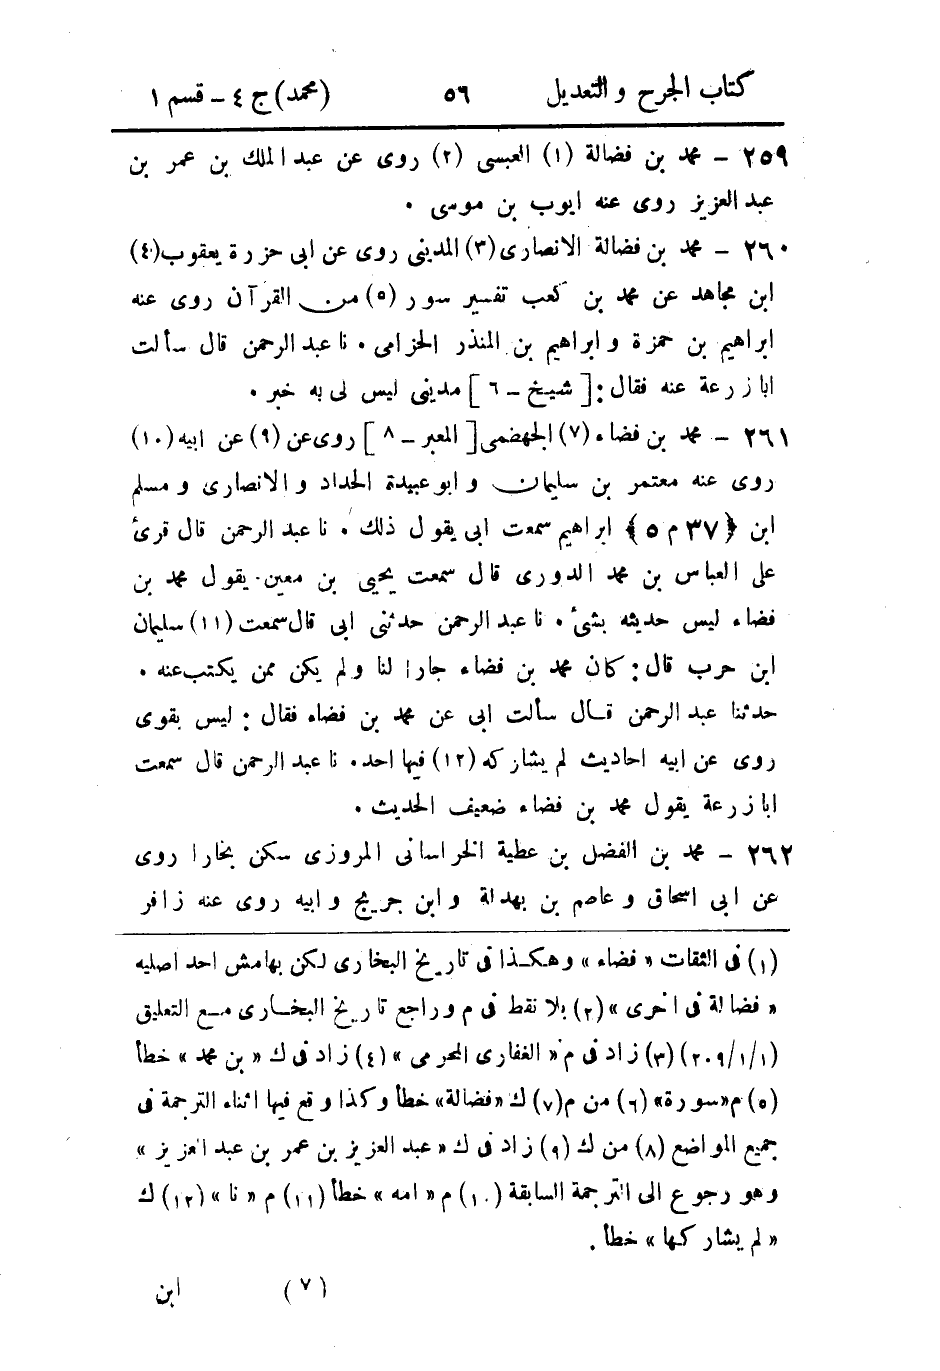 كتاب الجرح والتعديل ٥٦ (محمد) ج ٤ - قسم ١
٢٥٩ - محمد بن فضالة (١) العبسى (٢) روى عن عبد الملك بن عمر بن
عبد العزيز روى عنه ايوب بن موسى .
٢٦٠ - محمد بن فضالة الانصارى (٣) المدينى روى عن ابى حزرة يعقوب (٤)
ابن مجاهد عن محمد بن كعب تفسير سور (٥) من القرآن روى عنه
ابراهيم بن حمزة وابراهيم بن المنذر الحزامى . نا عبد الرحمن قال سألت
ابا زرعة عنه فقال : [ شيخ - ٦ ] مدينى ليس لى به خبر .
٢٦١ - محمد بن فضاء (٧) الجهضمى [ المعبر - ٨ ] روى عن (٩) عن ابيه (١٠)
روى عنه معتمر بن سليمان وابو عبيدة الحداد والانصارى ومسلم
ابن ﴿٣٧ م ٥﴾ ابراهيم سمعت ابى يقول ذلك . نا عبد الرحمن قال قرئ
على العباس بن محمد الدورى قال سمعت يحيى بن معين يقول محمد بن
فضاء ليس حديثه بشئ . نا عبد الرحمن حدثنى ابى قال سمعت (١١) سليمان
ابن حرب قال : كان محمد بن فضاء جارا لنا ولم يكن ممن يكتب عنه .
حدثنا عبد الرحمن قال سألت ابى عن محمد بن فضاء فقال : ليس بقوى
روى عن ابيه احاديث لم يشاركه (١٢) فيها احد . نا عبد الرحمن قال سمعت
ابا زرعة يقول محمد بن فضاء ضعيف الحديث .
٢٦٢ - محمد بن الفضل بن عطية الخراسانى المروزى سكن بخارا روى
عن ابى اسحاق وعاصم بن بهدلة وابن جريج وابيه روى عنه زافر
(١) فى الثقات « فضاء » وهكذا فى تاريخ البخارى لكن بهامش احد اصليه
« فضالة فى اخرى » (٢) بلا نقط فى م وراجع تاريخ البخارى مع التعليق
(٢٠٩/١/١) (٣) زاد فى م « الغفارى المحرمى » (٤) زاد فى ك « بن محمد » خطأ
(٥) م « سورة » (٦) من م (٧) ك « فضالة » خطأ وكذا وقع فيها اثناء الترجمة فى
جميع المواضع (٨) من ك (٩) زاد فى ك « عبد العزيز بن عمر بن عبد العزيز »
وهو رجوع الى الترجمة السابقة (١٠) م « امه » خطأ (١١) م « نا » (١٢) ك
« لم يشاركها » خطأ .
(٧) ابن